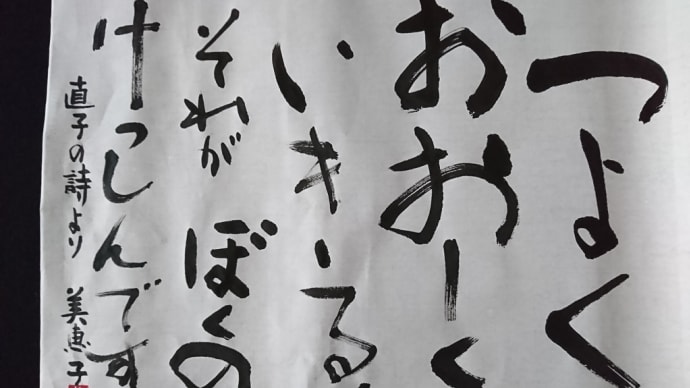 つよく
おおーく
いきーる
それが ぼくの
けっしんです
直子の詩より 美恵子